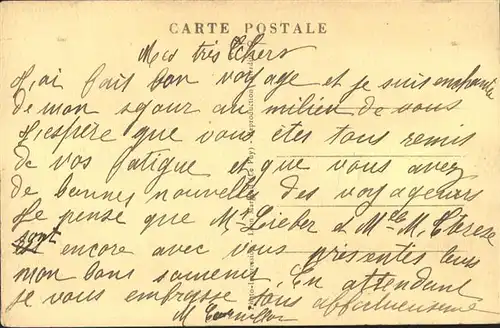 CARTE POSTALE
Mes très Chers
J'ai fait bon voyage et je suis enchantée
de mon séjour au milieu de vous
J'espère que vous êtes tous remis
de vos fatigue et que vous avez
de bonnes nouvelles des voyageurs
Je pense que Mr et Mlle M.
sont encore avec vous présentez leurs
mon bons souvenir. En attendant
je vous embrasse tous affectueusement
M